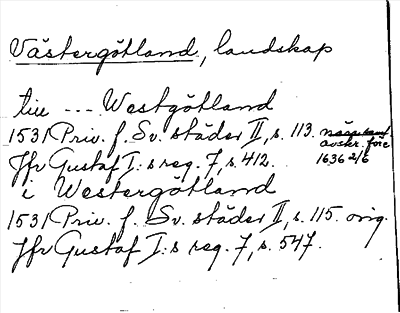 Västergötland, landskap
till --- Westgötland
1531 Priv. f. Sv. städer II, s. 113.
avskr. före
1636 2/6
Jfr Gustaf I:s reg. 7, s. 412.
i Westergötland
1531 Priv. f. Sv. städer II, s. 115. orig.
Jfr Gustaf I:s reg. 7, s. 547.